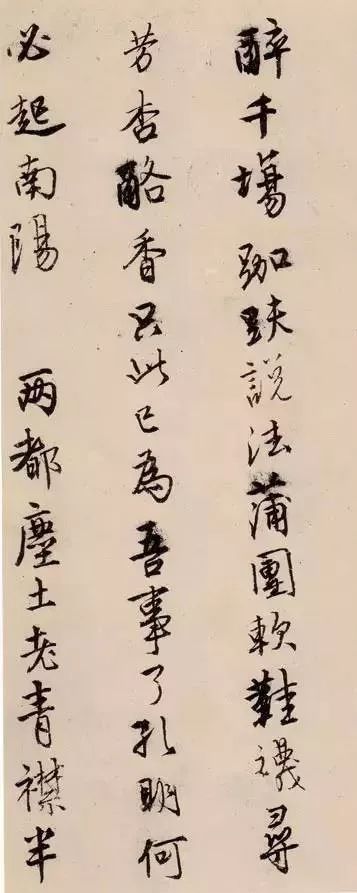 醉千場跏趺說法蒲團軟鞋襪尋
芳杏酪香只此已為吾事了孔明何
必起南陽　兩都塵土老青襟半